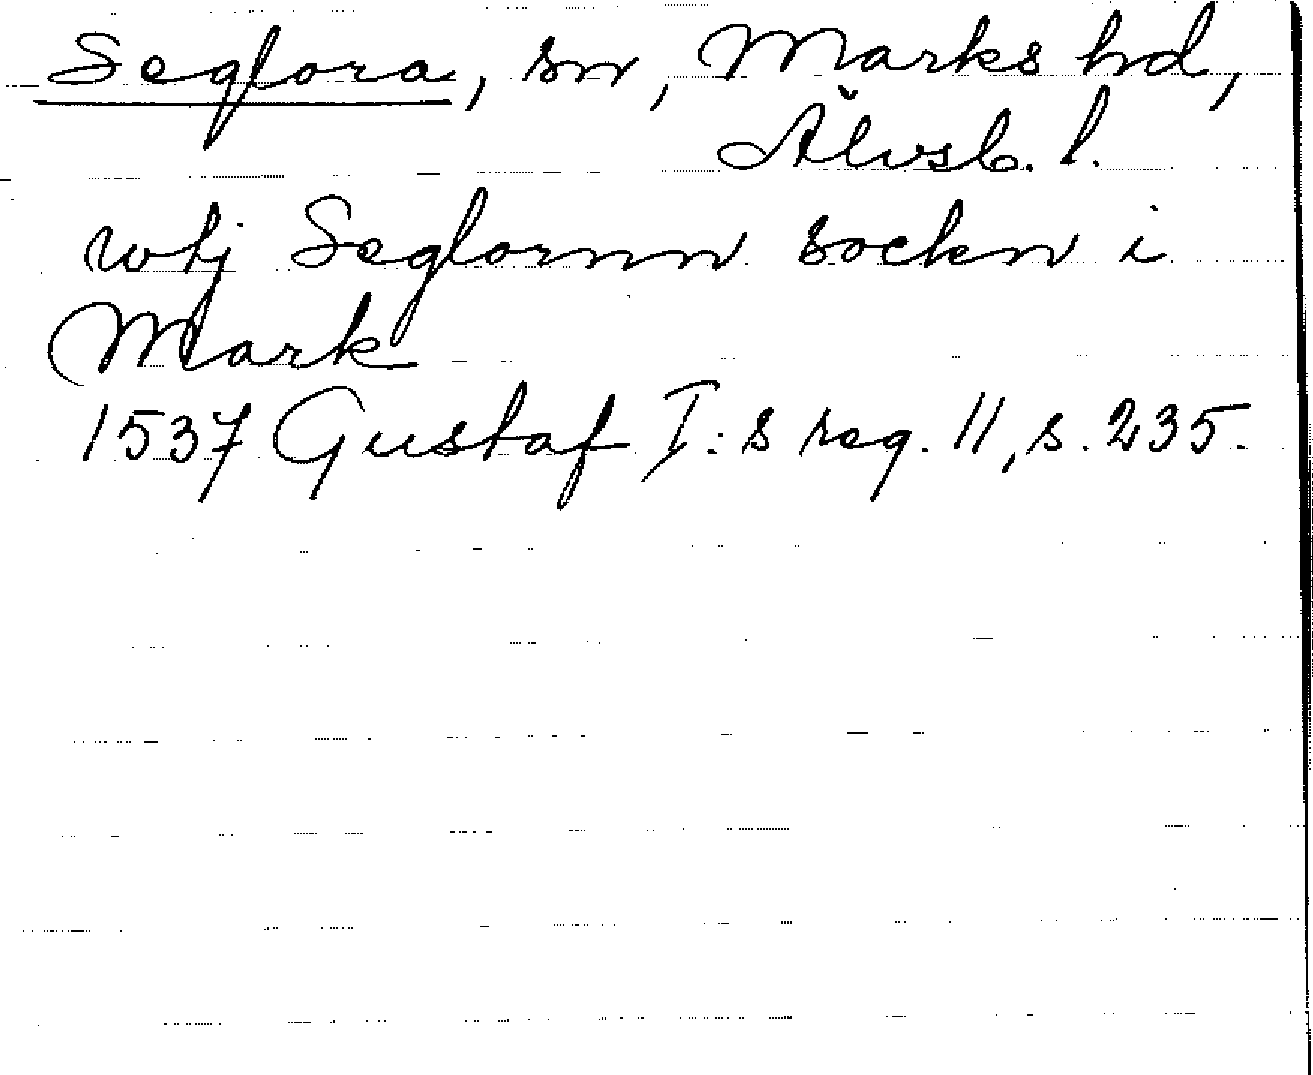 Seglora, sn, Marks hd,
Älvsb. l.
utj Seglornn sockn i
Mark
1537 Gustaf I:s reg. 11, s. 235.